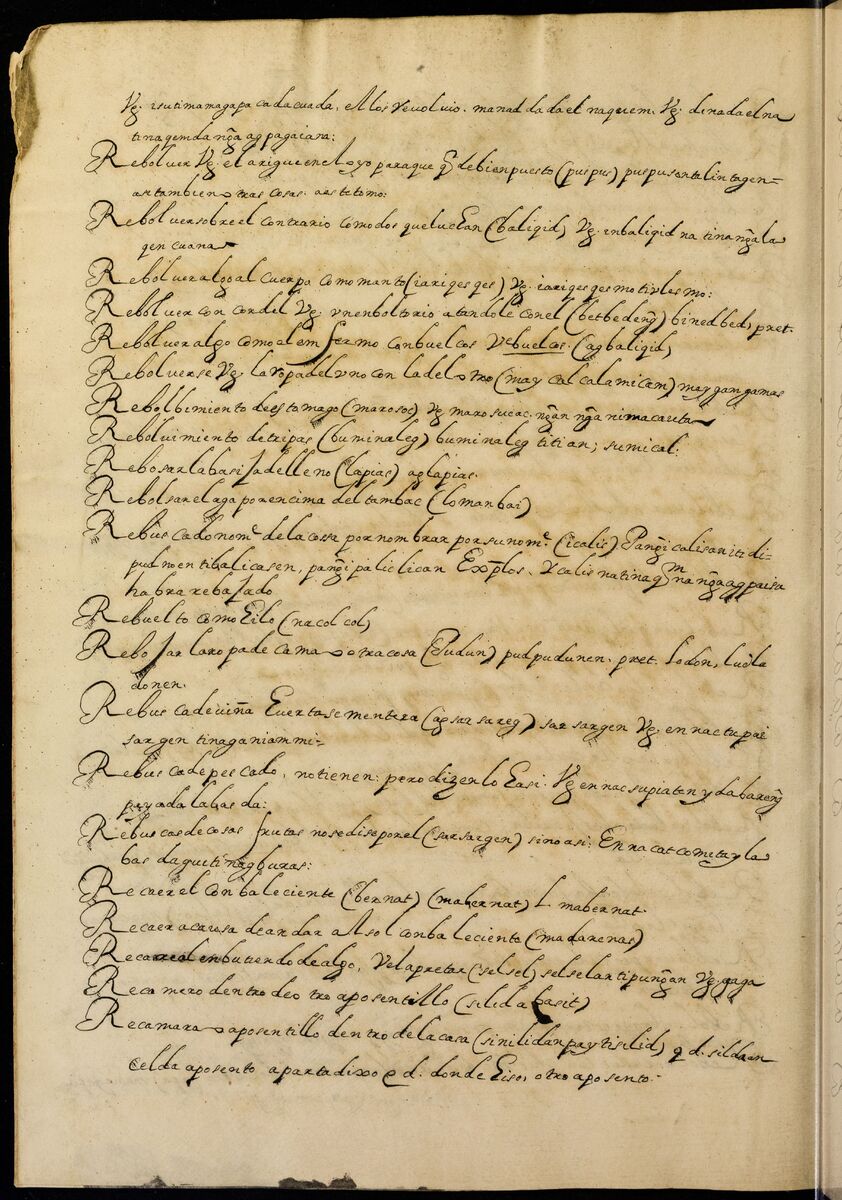 Vg. isutimamagapa cadacuada, ellos revolvio. manad dadael naquem. Vg. dinadaelna
tinagemdangãag pagaiana:
Rebolver Vg. el arigue en el oyo para que q̃de bien puesto (puspus) puspusanta lintagen=
ar tambien otras cosas. aestetomo:
Rebolver sobre el contrario como dos que luchan (baligid) Vg. inbaligid na tinangãla
qen cuana
Rebolver algo al cuerpo como manto (iariqesqes) Vg. iariqesqes mo ti vles mo:
Rebolver con cordel Vg. vn enboltorio atandole con el (betbedeng̃) binedbed, pret.
Rebolver algo como al emfermo con buelcos Vebuelcos. (agbaligid)
Rebolverse Vg. la ropa del vno con la del otro (may cal calamicam) maygangamas
Rebolbimiento de estomago (marosoc) Vg. marosucac. ngãn ngãnimacauta
Rebolvimiento de tripas (buminaleg) buminaleg titian; sumical:
Rebosar la basija de lleno (lapias) aglapias.
Rebolsar el aga por encima del tambac (lomanbai)
Rebuscado nomᵉ. de la cosa por nombrar por su nomᵉ. (icalis) Pang̃icalisan iti di=
pudno en tibalicasen, pang̃ipaliclican Exp̃los. Ycalis na tina qᵐ na ngãag pai sa
habra rebajado
Rebuelto como hilo (nacolcol)
Rebojar la ropa de cama o otra cosa (Pudun) pudpudunen. pret. lodon, lud la
donen.
Rebusca de viña huerta sementera (agsarsareg) sarsargen Vg. en nactu pai
sargen tinaganiammi-
Rebusca de pescado, no tienen: pero dizenlo hasi. Vg en nac supiaten y dabareng̃
payadalabasda:
Rebuscas de cosas frutas no se dise por el (sarsargen) sino asi. En nacat cometay la
bas daguiti nagburas:
Recaer el conbaleciente (bernat) (mabernat) L. mabernat.
Recaer a causa de andar al sol conbaleciente (madarenas)
Recalcal enbutiendo de algo, Vel apretar (selsel) selselan ti pungãn Vg. gaga
Recamero dentro de otro aposentillo (silid a basit)
Recamara o aposentillo dentro de la casa (sinilidan pay ti silid) q. d. sildaan
celda aposento apartadixo q d. donde hiso, otro aposento.-